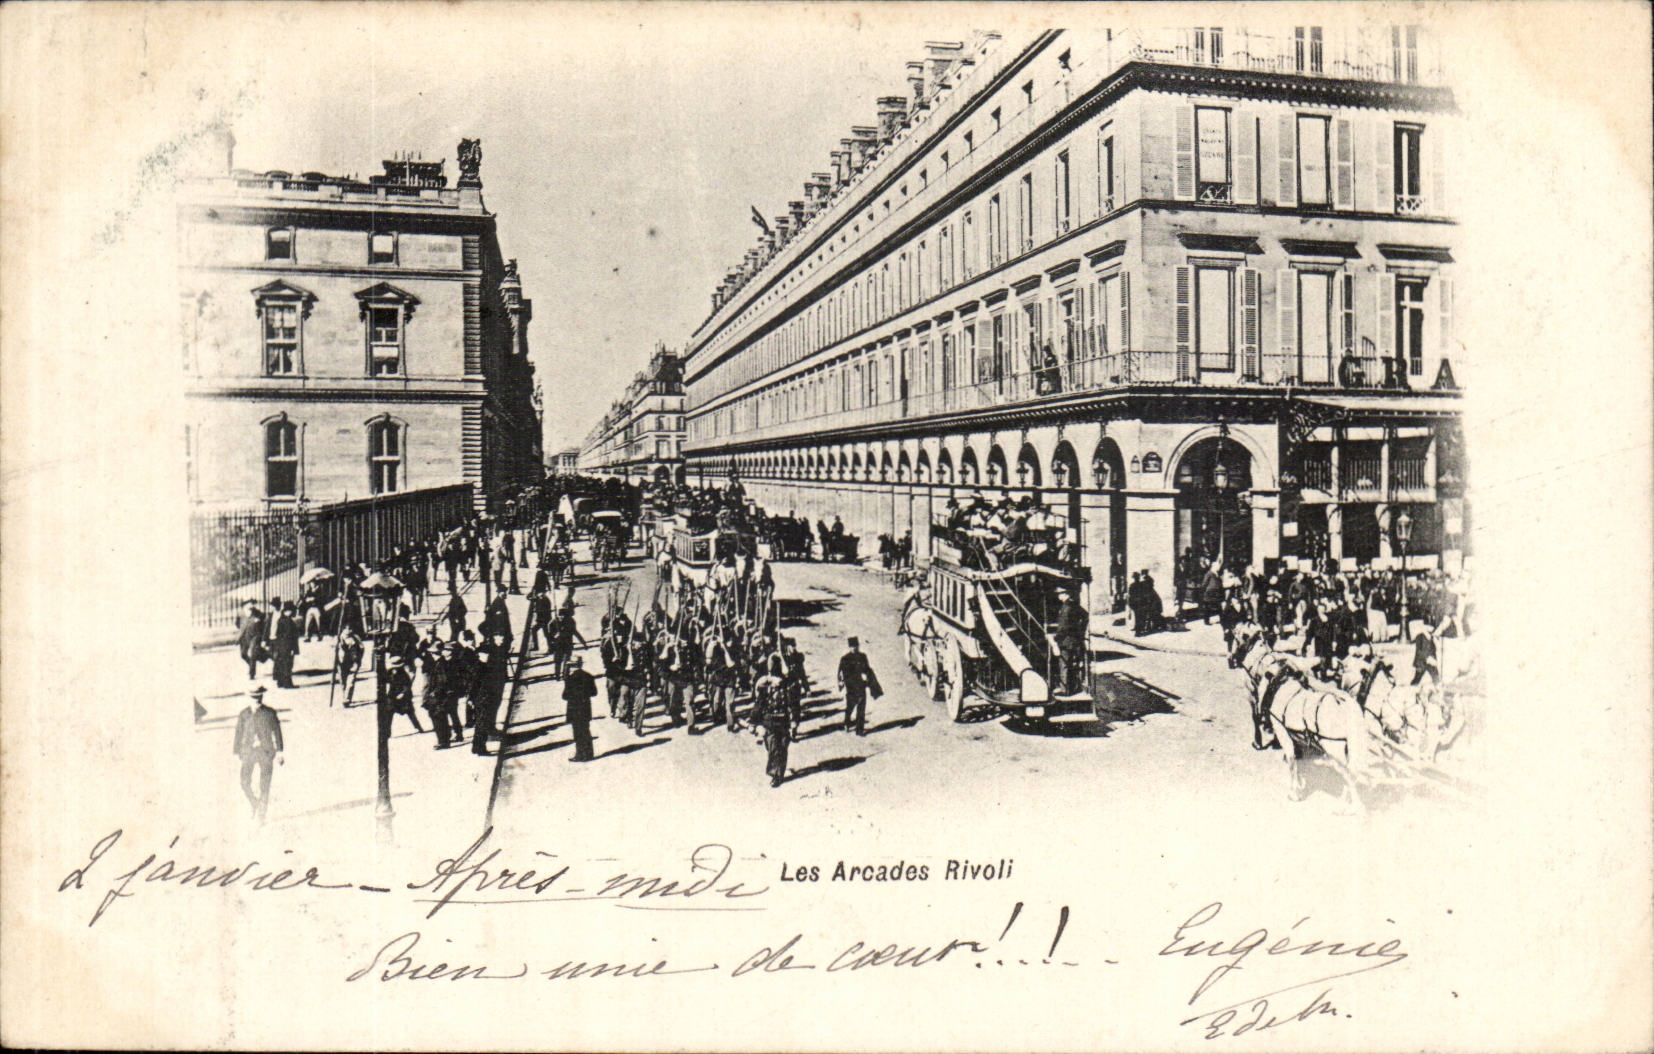 GRA
Les Arcades Rivoli
2 janvier - Après-midi
Bien unie de cœur!..!.. Eugénie
E de M.